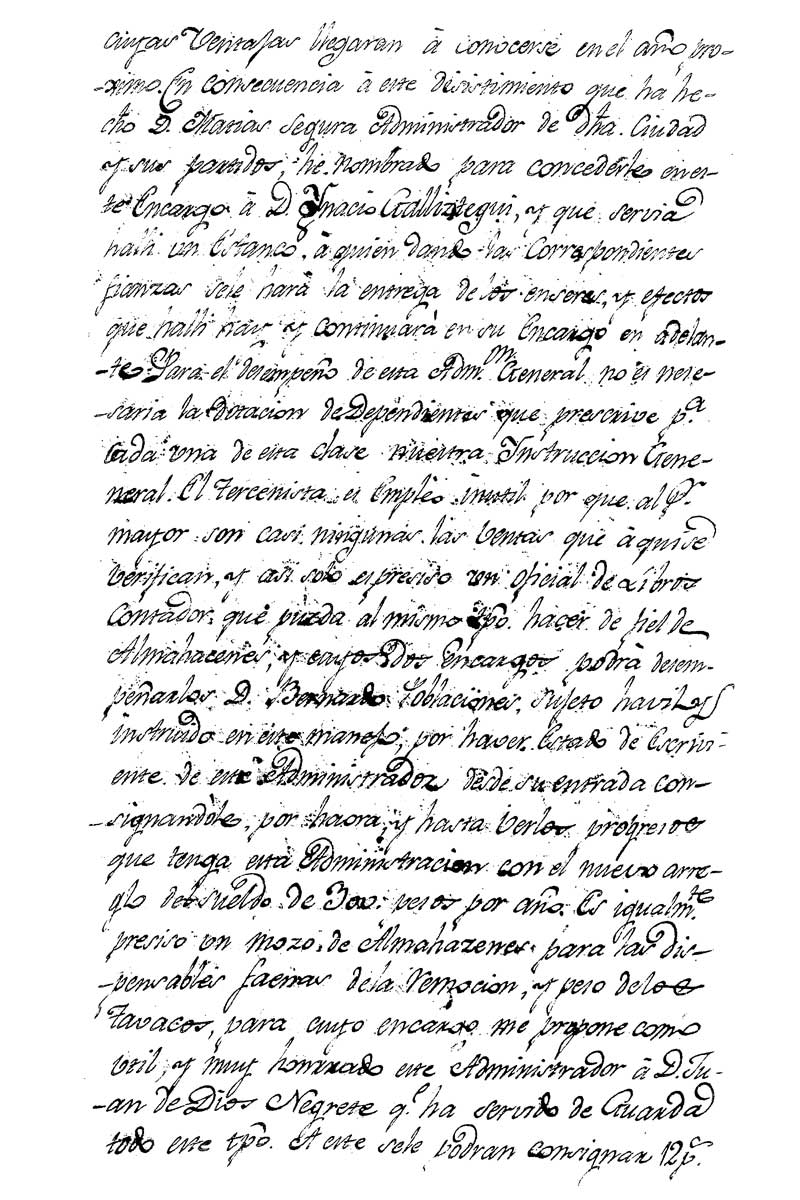 cuyas Ventajas llegaran à conocerse en el año pro-
-ximo. En consecuencia à este desistimiento que ha he-
cho D. Matias Segura Administrador de dha. Ciudad
y sus partidos, he nombrado para concederle en es-
te Encargo à D. Ynacio Galliztegui, y que servia
halli un Estanco, à quien dando las Correspondientes
fianzas sele harà la entrega de los enseres, y efectos
que halli hay y continuarà en su Encargo en adelan-
-te. Para el desempeño de esta Adm.on General no es nese-
-saria la dotacion de Dependientes que prescrive p.a
Cada una de esta clase nuestra Instruccion Gene-
neral. El tercenista es Empleo inutil por que al P.r
mayor son casi ningunas las Ventas que aqui se
verifican, y asi solo es presiso un oficial de Libros
Contador que pueda al mismo tpo. hacer de fiel de
Almahacenes, y cuyos dos Encargos podrà desem-
peñarlos D. Bernardo Poblaciones, sujeto havil y
instruido en este manejo, por haver Estado de Escrivi-
ente de este Administrador desde su entrada con-
-signandole, por haora, y hasta Verlos progresos
que tenga esta Administracion con el nuevo arre-
glo del sueldo de 300. pesos por año. Es igualm.te
presiso un mozo de Almahazenes para las dis-
-pensables faenas dela Remocion, y peso de los
tavacos, para cuyo encargo me propone como
util, y muy honrrado este Administrador à D. Ju-
-an de Dios Negrete q.e ha servido de Guarda
todo este tpo. A este sele podran consignar 12 p.s